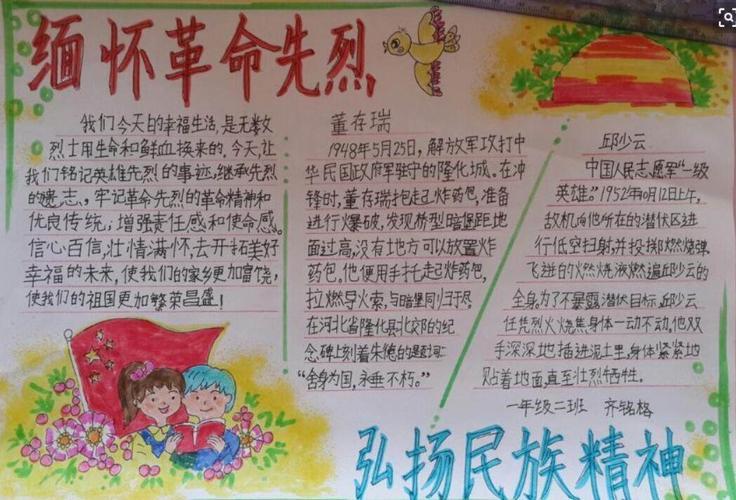 缅怀革命先烈
我们今天的幸福生活,是无数
烈士用生命和鲜血换来的。今天,让
我们铭记英雄先烈的事迹,继承先烈
的遗志,牢记革命先烈的革命精神和
优良传统,增强责任感和使命感。
信心百信,壮情满怀,去开拓美好
幸福的未来,使我们的家乡更加富饶,
使我们的祖国更加繁荣昌盛!
董存瑞
1948年5月25日,解放军攻打中
华民国政府军驻守的隆化城。在冲
锋时,董存瑞抱起炸药包,准备
进行爆破,发现桥型暗堡距地
面过高,没有地方可以放置炸
药包。他便用手托起炸药包,
拉燃导火索,与暗堡同归于尽。
在河北省隆化县北郊的纪
念碑上刻着朱德的题词:
“舍身为国,永垂不朽。”
邱少云
中国人民志愿军“一级
英雄。”1952年10月12日上午,
敌机向他所在的潜伏区进
行低空扫射,并投掷燃烧弹,
飞迸的燃烧液燃遍邱少云的
全身,为了不暴露潜伏目标,邱少云
任凭烈火烧焦身体一动不动,他双
手深深地插进泥土里,身体紧紧地
贴着地面,直至壮烈牺牲。
一年级二班 齐铭格
弘扬民族精神